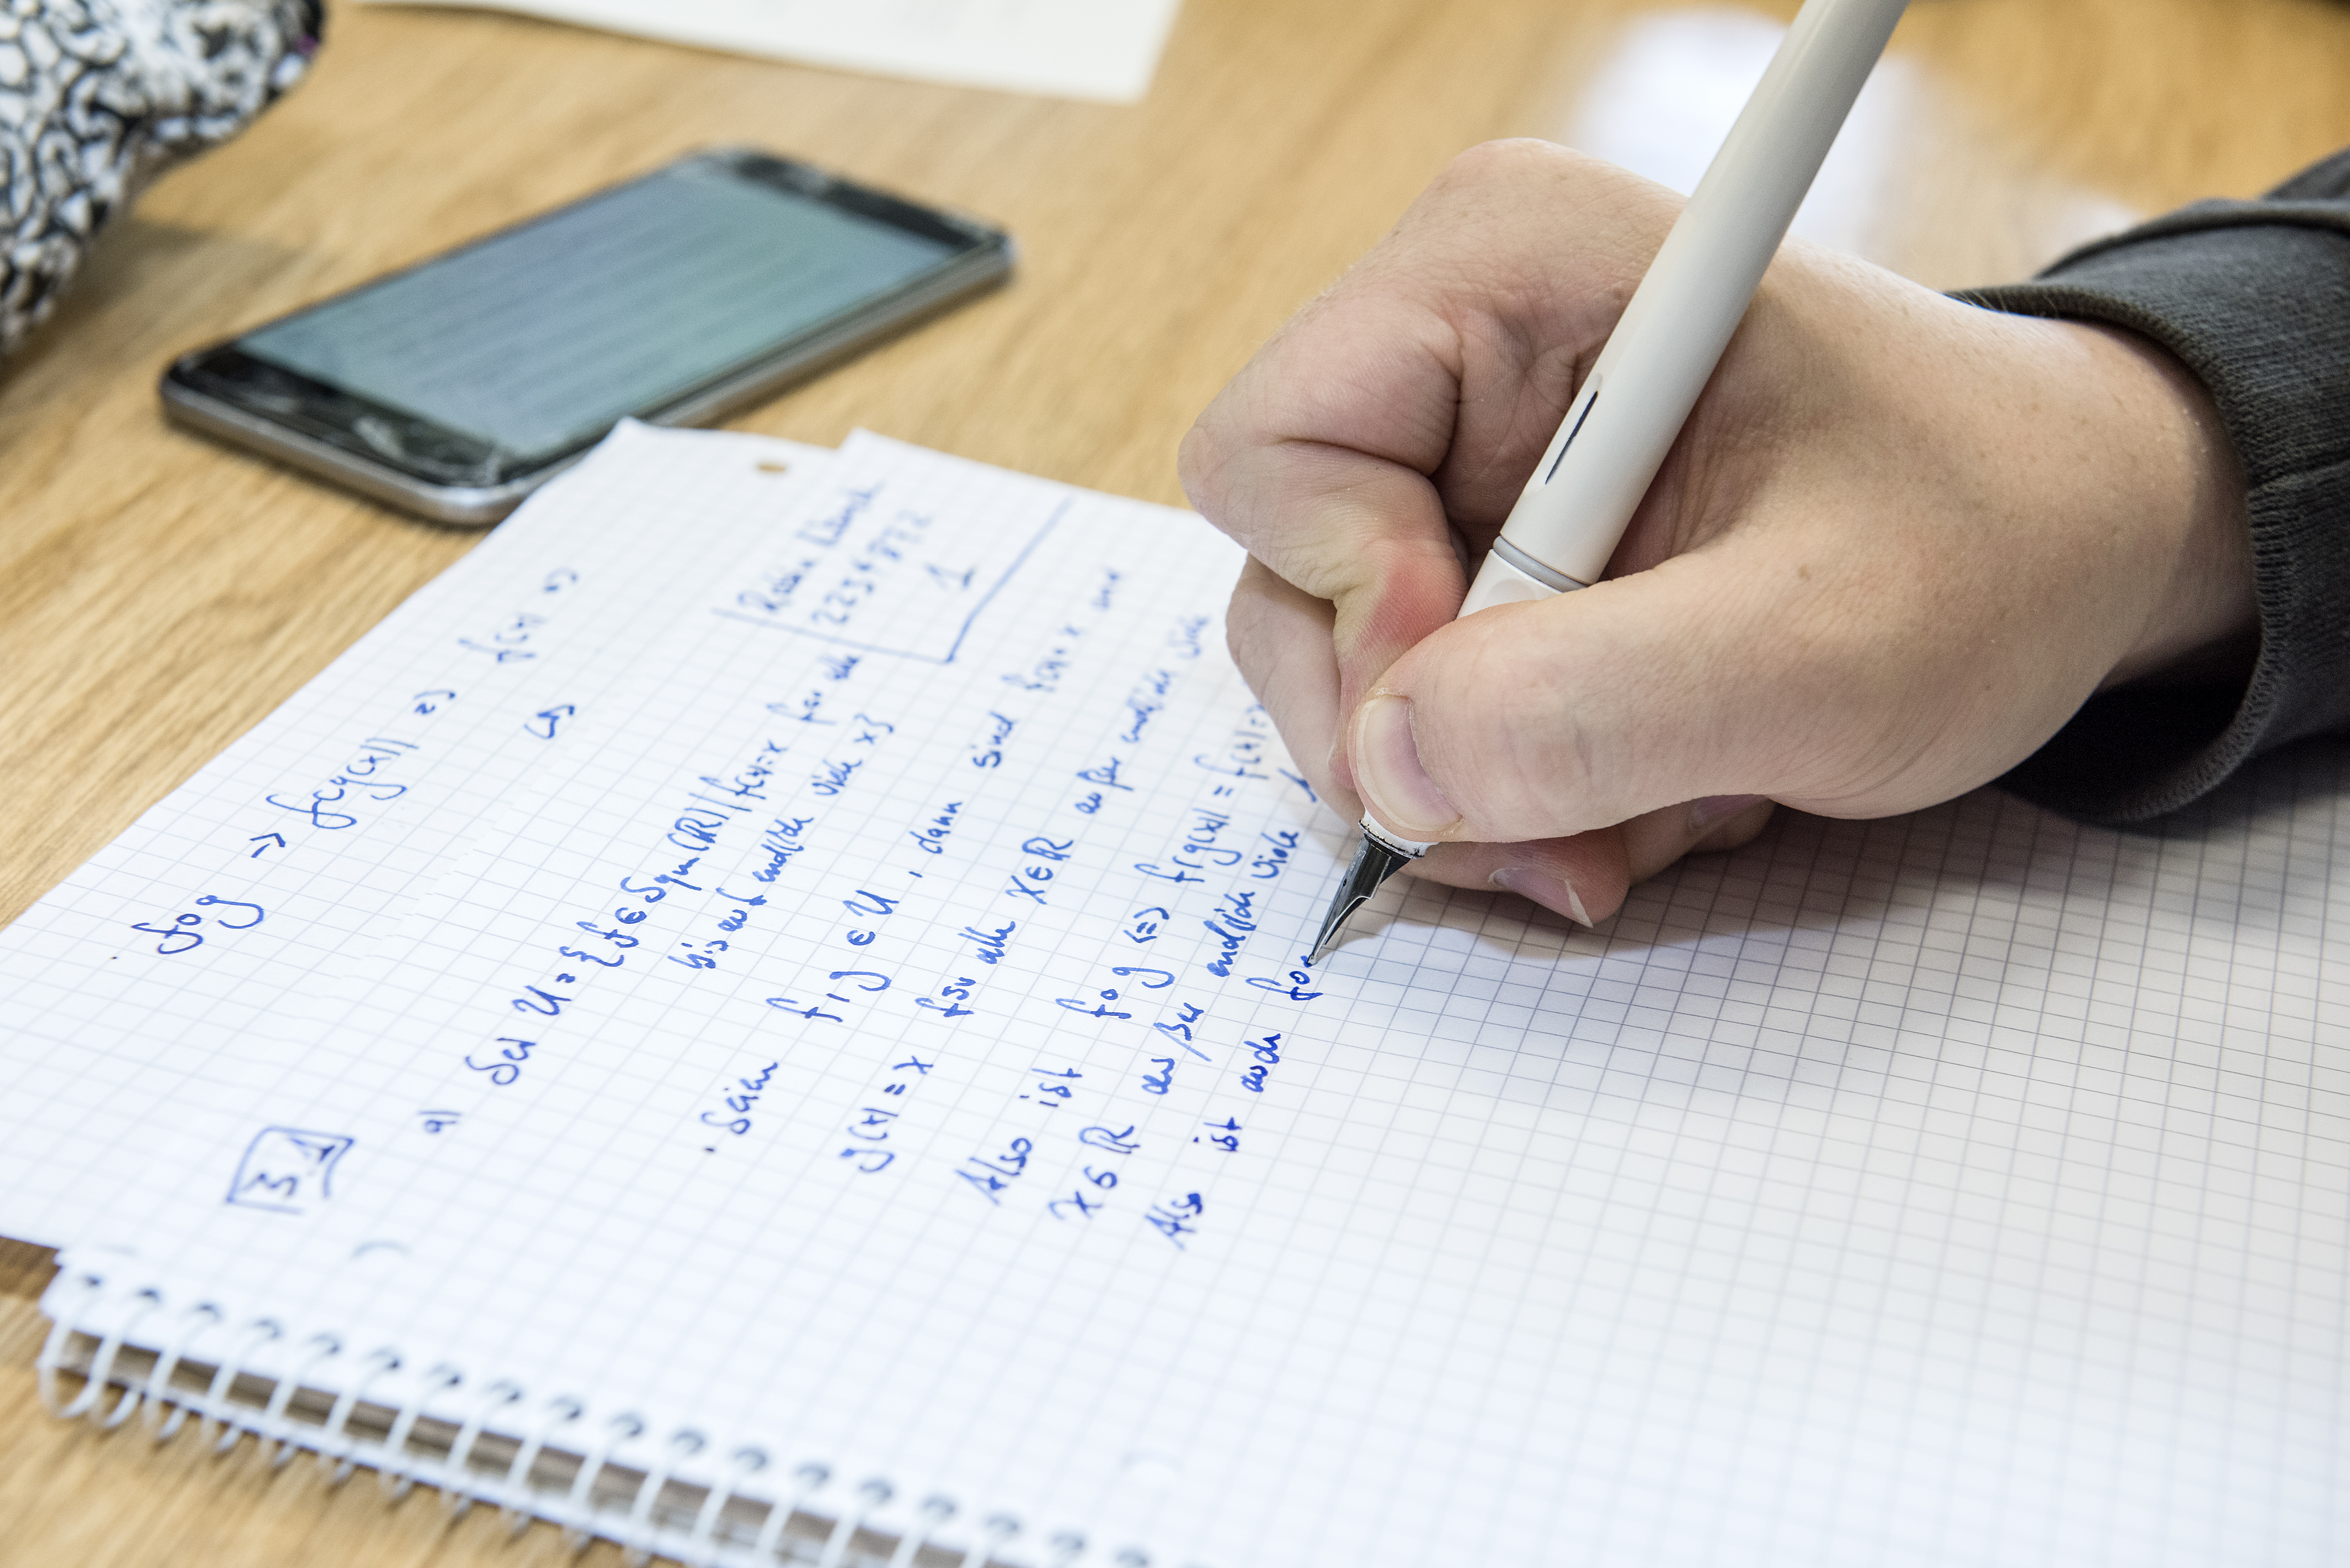 f∘g → f(g(x)) => f(x) =>
(=)
1
3.1
a) Sei U = { f ∈ Sym(ℝ) | f(x) = x für alle
bis auf endlich viele x }
· Seien f, g ∈ U, dann sind f(x) = x und
g(x) = x für alle x ∈ ℝ außer endlich viele
Also ist f∘g <=> f(g(x)) = f(x) =
x ∈ ℝ außer endlich viele
Also ist auch f∘